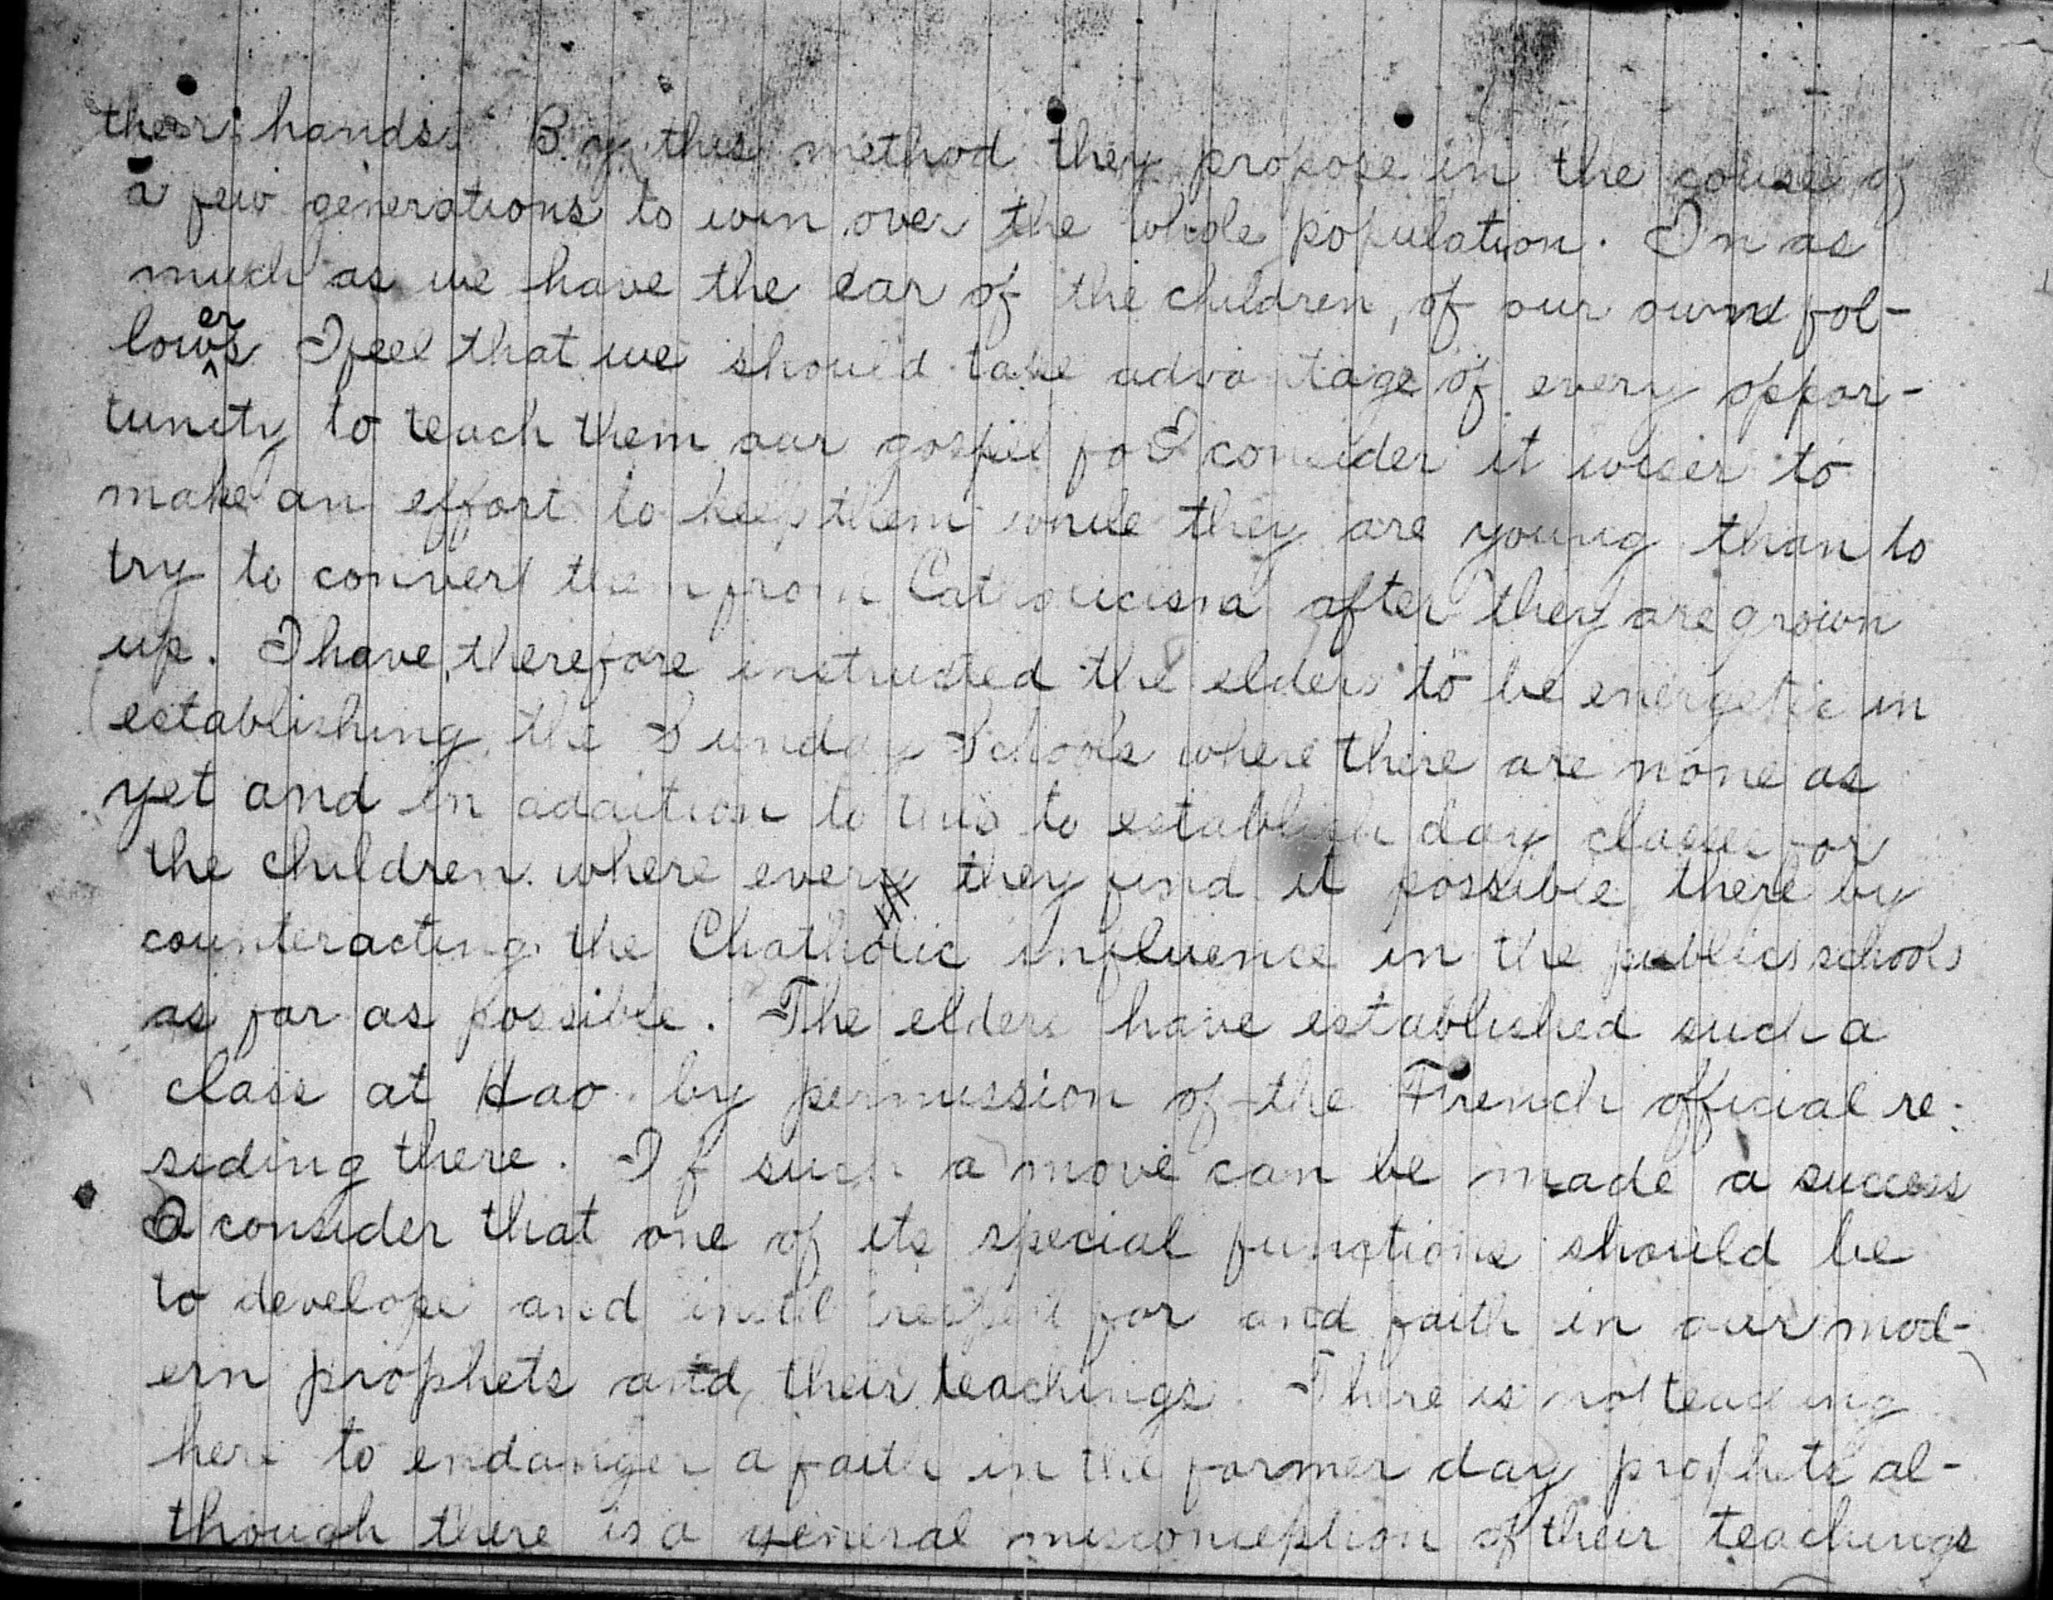 their hands. By this method they propose in the couse of
a few generations to win over the whole population. In as
much as we have the ear of the children, of our own fol-
lowers I feel that we should take advantage of every oppor-
tunity to teach them our gospel fo I consider it wiser to
make an effort to keep them while they are young than to
try to convert them from Catholicism after they are grown
up. I have, therefore instructed the elders to be energetic in
establishing the Sunday Schools where there are none as
yet and in addition to this to establish day classes for
the children where ever they find it possible there by
counteracting the Chatholic influence in the public schools
as far as possible. The elders have established such a
class at Hao by permission of the French official re-
siding there. If such a move can be made a success
I consider that one of its special functions should be
to develope and instil respect for and faith in our mod-
ern prophets and their teachings. There is no teaching
here to endanger a faith in the former day prophets al-
though there is a general misconception of their teachings